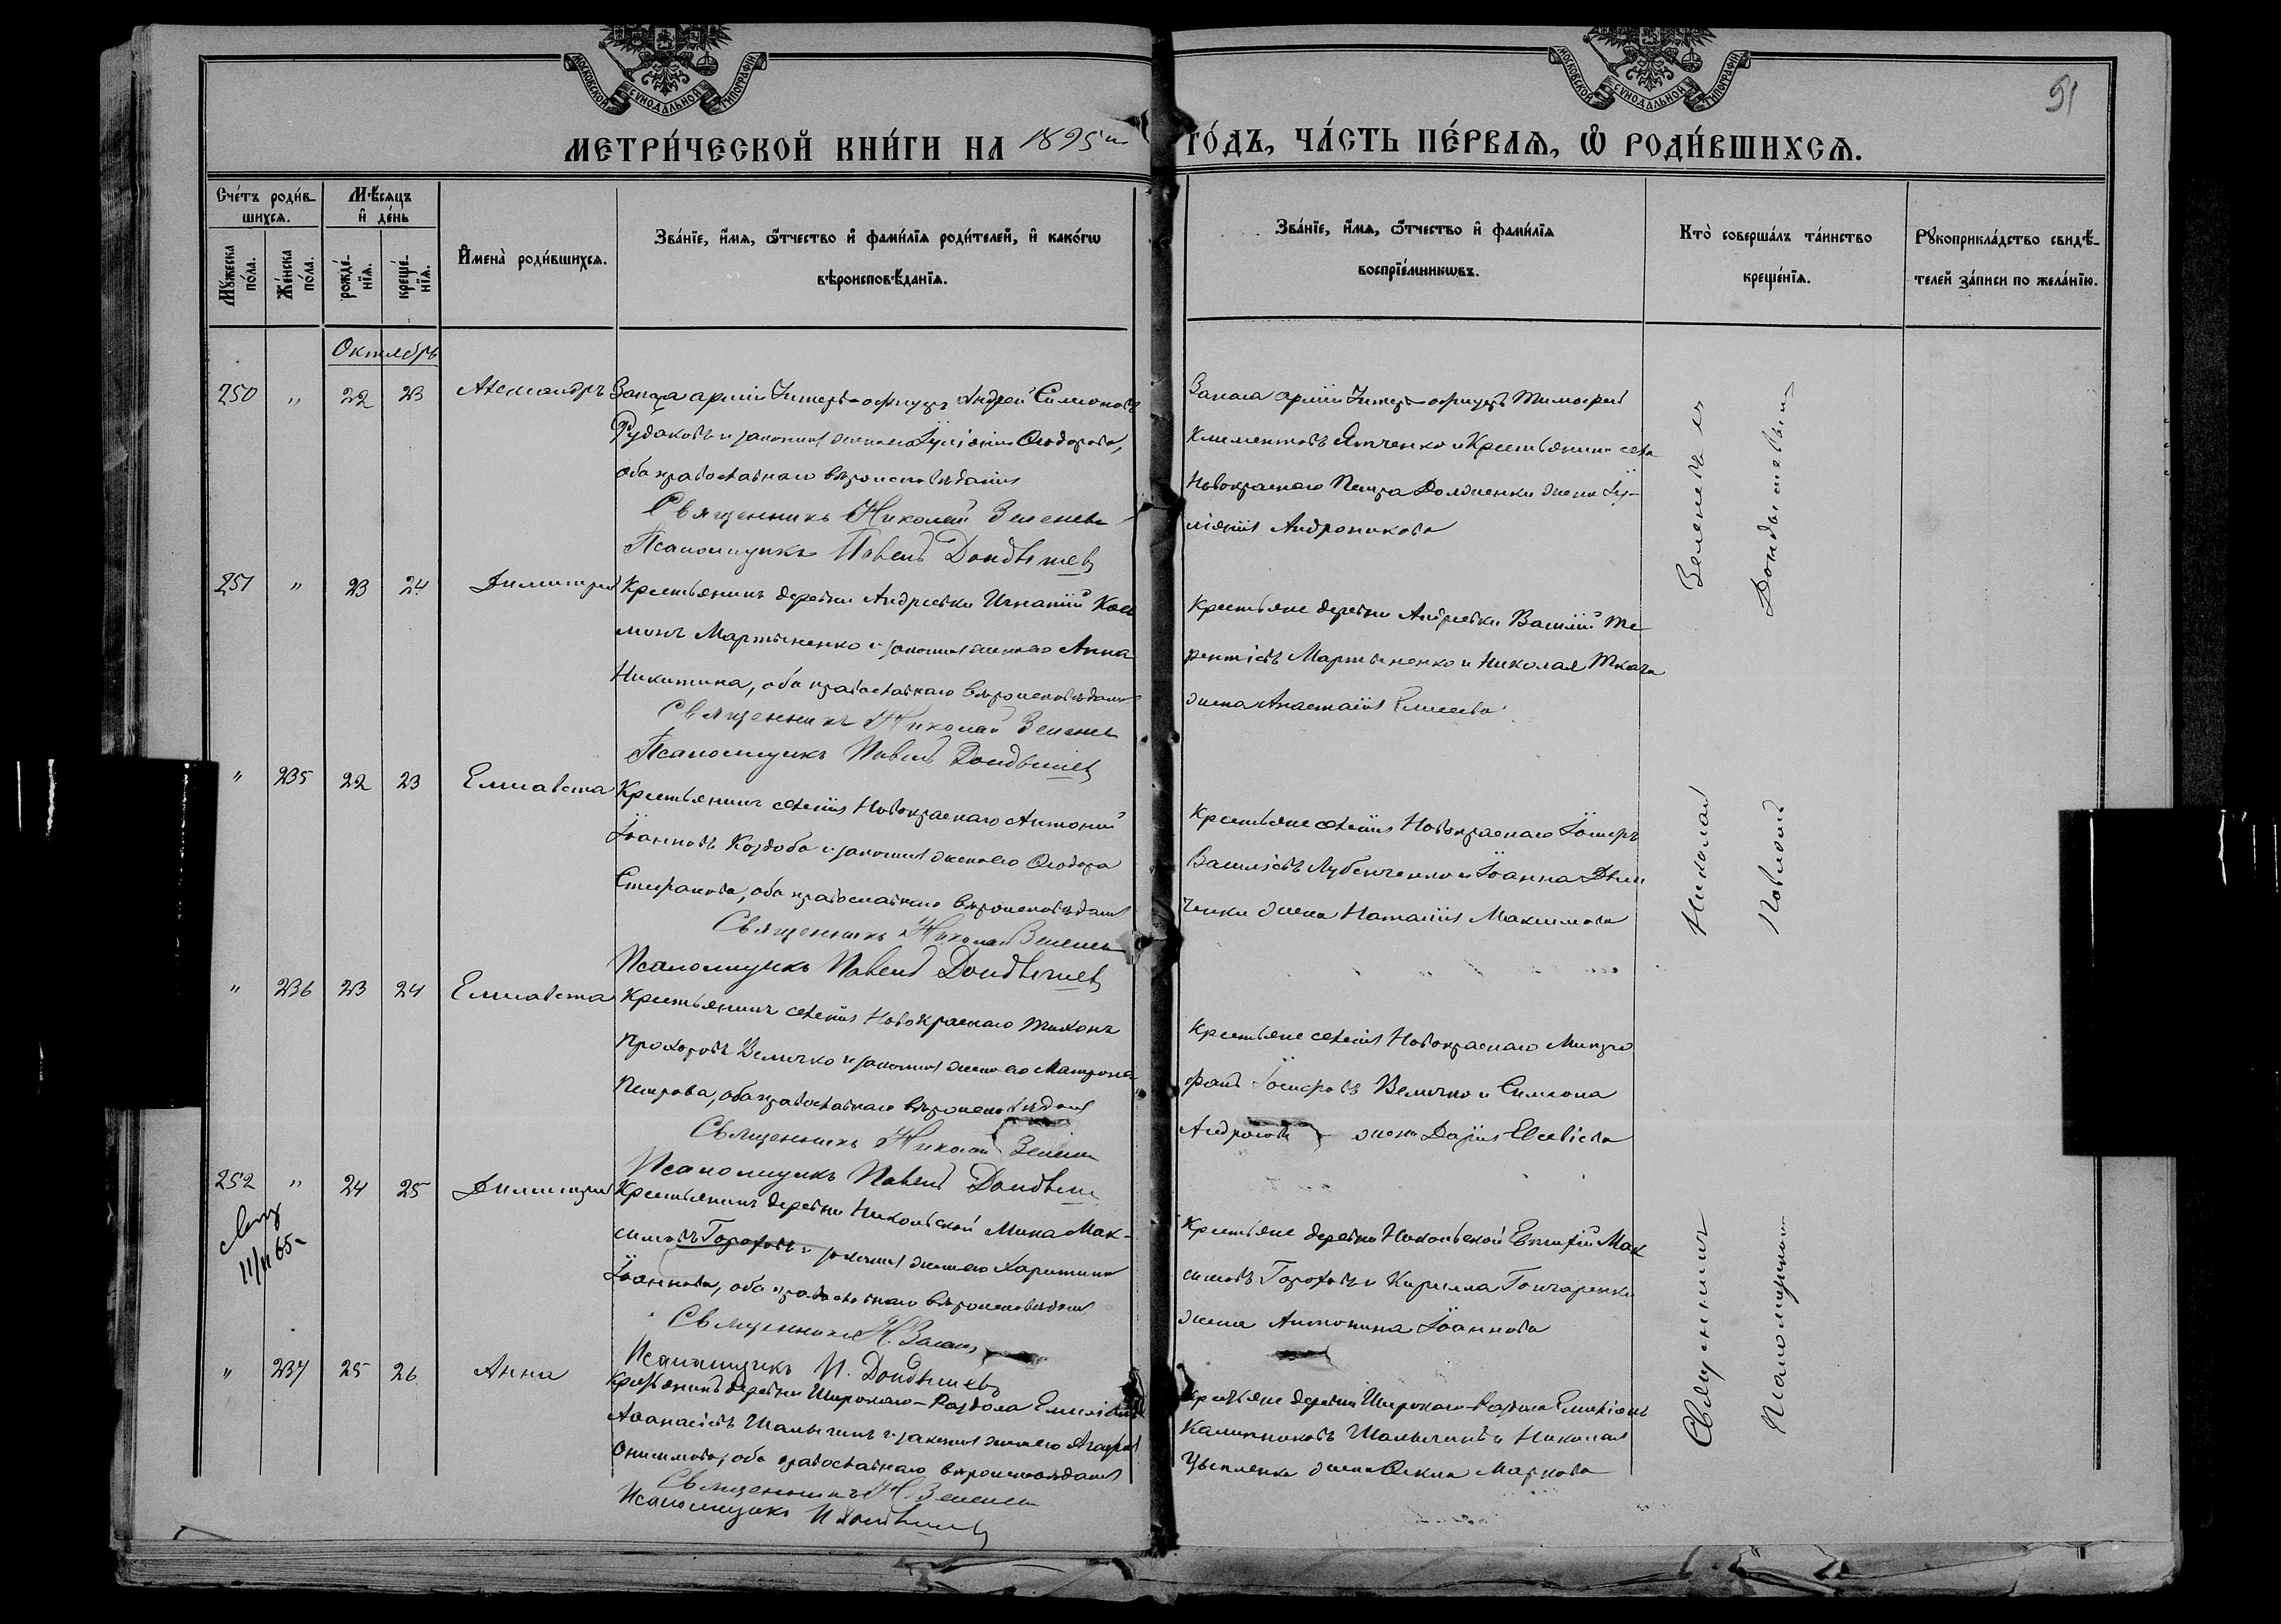 МОСКОВСКОЙ СУНОДАЛЬНОЙ ТИПОГРАФІИ
МОСКОВСКОЙ СУНОДАЛЬНОЙ ТИПОГРАФІИ
91
МЕТРИ́ЧЕСКОЙ КНИ́ГИ НА 1895й ГО́ДЪ, ЧА́СТЬ ПЕ́РВАѦ, Ѡ РОДИ́ВШИХСѦ.
Сче́тъ роди́в-
шихсѧ.
Мꙋ́жеска по́ла.
Же́нска по́ла.
Мѣ́сѧцъ
и҆ де́нь
рожде́-
нїѧ.
креще́-
нїѧ.
И҆мена̀ роди́вшихсѧ.
Зва́нїе, и҆́мѧ, ѻ҆́тчество и҆ фами́лїѧ роди́телей, и҆ како́гѡ
вѣроисповѣ́данїѧ.
Зва́нїе, и҆́мѧ, ѻ҆́тчество и҆ фами́лїѧ
воспрїе́мникѡвъ.
Кто̀ соверша́лъ та́инство
креще́нїѧ.
Рꙋкоприкла́дство свидѣ́-
телей за́писи по жела́нїю.
Октябрь
250 " 22 23 Александръ
Запаса арміи Унтеръ-офицеръ Андрей Симоновъ
Рудаковъ и законная жена его Іуліанія Ѳеодорова,
оба православнаго вѣроисповѣданія
Священникъ Николай Зеленевъ
Псаломщикъ Павелъ Дондышев
Запаса арміи Унтеръ-офицеръ Тимофей
Климентовъ Ятченко и Крестьянина села
Новокраснаго Петра Долженки жена Іу-
ліанія Андроникова
251 " 23 24 Димитрій
Крестьянинъ деревни Андреевки Игнатій Кос
минъ Мартыненко и законная жена его Анна
Никитина, оба православнаго вѣроисповѣданія
Священникъ Николай Зеленевъ
Псаломщикъ Павелъ Дондышев
Крестьяне деревни Андреевки Василій Те
рентіевъ Мартыненко и Николая Ткача
жена Анастасія Елисеева
" 235 22 23 Елисавета
Крестьянинъ селенія Новокраснаго Антоній
Іоанновъ Коздоба и законная жена его Ѳеодора
Стефанова, оба православнаго вѣроисповѣданія
Священникъ Николай Зеленевъ
Псаломщикъ Павелъ Дондышев
Крестьяне селенія Новокраснаго Іосифъ
Василіевъ Лубенченко и Іоанна
жена Наталія Максимова
" 236 23 24 Елисавета
Крестьянинъ селенія Новокраснаго Тихонъ
Прохоровъ Величко и законная жена его Матрона
Петрова, оба православнаго вѣроисповѣданія
Священникъ Николай Зеленевъ
Псаломщикъ Павелъ Дондыш
Крестьяне селенія Новокраснаго Митро
фанъ Іосифовъ Величко и Симеона
жена Дарія Евсевіева
252 " 24 25 Димитрій
11/II 65
Крестьянинъ деревни Никольской Мина Мак-
симовъ Гороховъ и законная жена его Харитина
Іоаннова, оба православнаго вѣроисповѣданія
Священникъ Н. Зеленевъ
Псаломщикъ П. Дондышевъ
Крестьяне деревни Никольской Евфимій Мак
симовъ Гороховъ и Кирилла Гончаренки
жена Антонина Іоаннова
" 237 25 26 Анна
Крестьянинъ деревни Широкаго-Раздола Емиліанъ
Аѳанасіевъ Шалыгинъ и законная жена его Агафія
Онисимова, оба православнаго вѣроисповѣданія
Священникъ Н. Зеленевъ
Псаломщикъ П Дондышев
Крестьяне деревни Широкаго-Раздола Емиліанъ
Калинниковъ Шалыгинъ и Николая
Цыпленка жена Ѳекла Маркова
Священникъ Николай Зеленевъ
Псаломщикъ Павелъ Дондышевъ